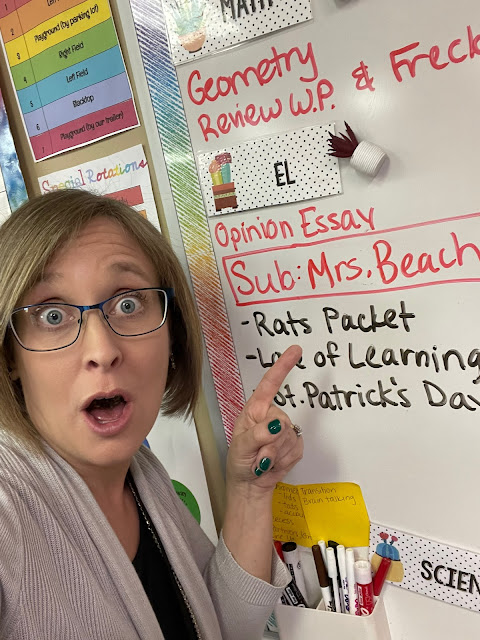 Playground (by parking lot)
Right Field
Left Field
Blacktop
Playground (by our trailer)
Special Rotations
MATH
Geometry
Review W.P. & Freck
EL
Opinion Essay
Sub: Mrs. Beach
- Rats Packet
- of Learning
t. Patrick's Day
Transition
Brain talking
SCIEN